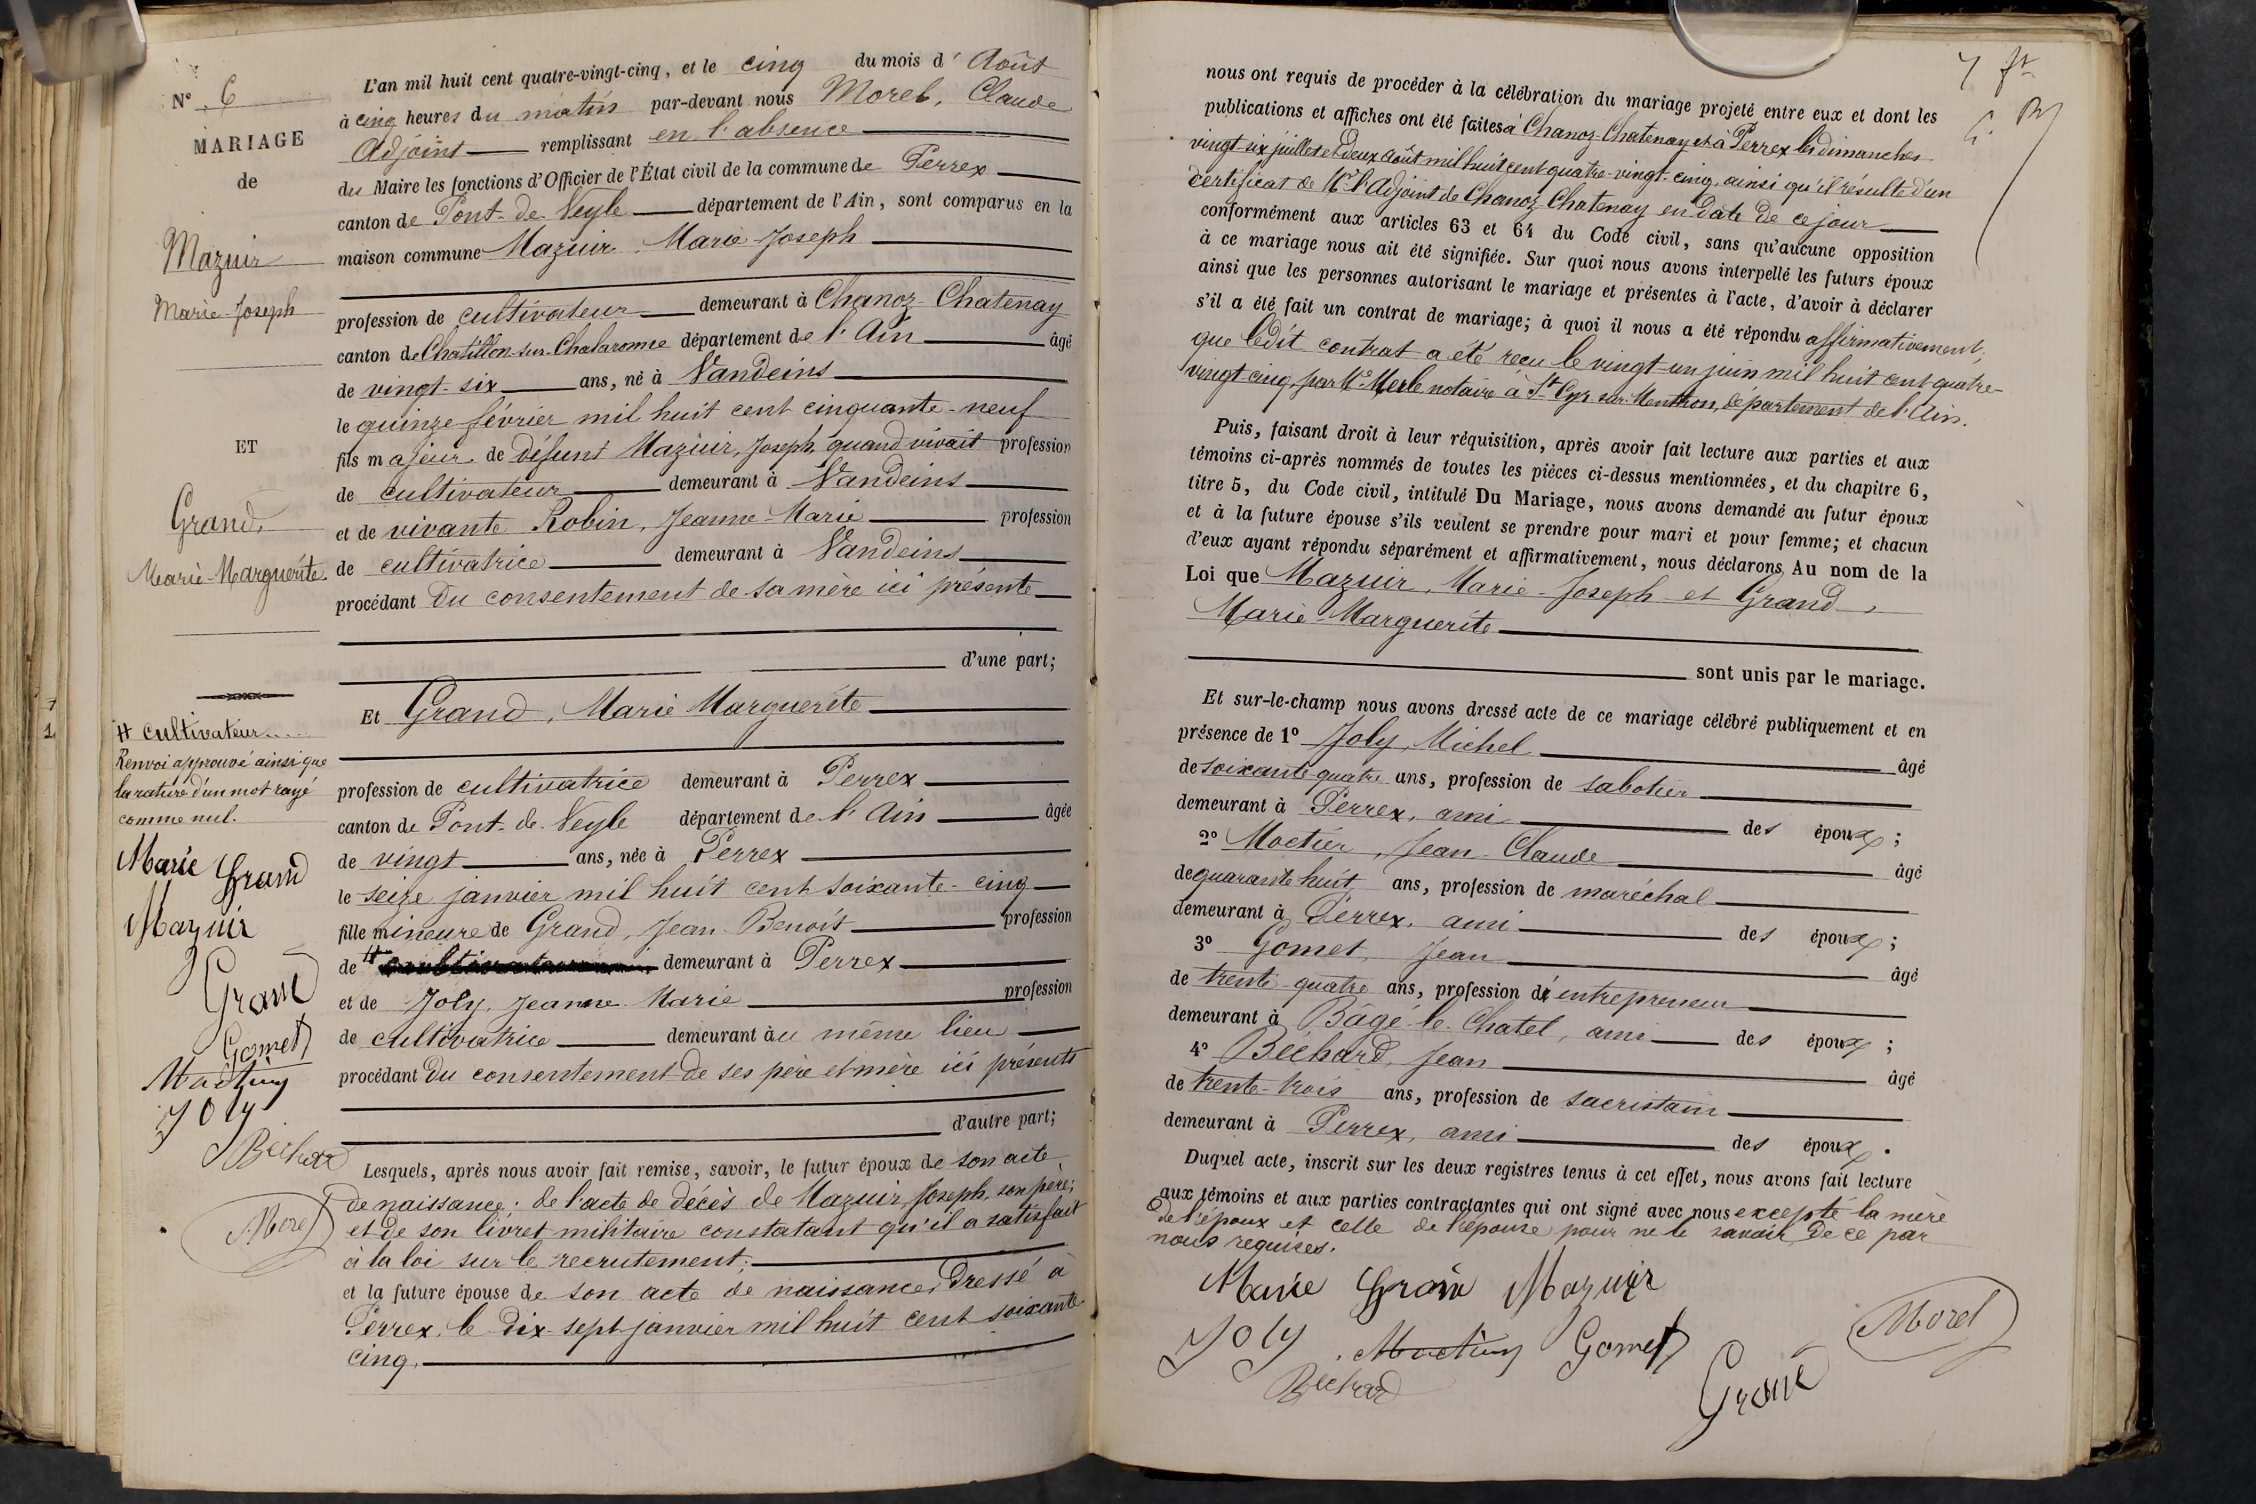 N° 6
MARIAGE
de
Mazuir
Marie Joseph
ET
Grand,
Marie-Marguerite.
# cultivateur
Renvoi approuvé ainsi que
la rature d'un mot rayé
comme nul.
Marie Grand
Mazuir
Grand
Gomet
Joly
Bechard
Morel
L'an mil huit cent quatre-vingt-cinq, et le cinq du mois d'Août
à cinq heures du matin par-devant nous Morel, Claude
Adjoint remplissant en l'absence
du Maire les fonctions d'Officier de l'État civil de la commune de Perrex
canton de Pont-de-Veyle département de l'Ain, sont comparus en la
maison commune Mazuir Marie-Joseph
profession de cultivateur demeurant à Chanoz-Chatenay
canton de Chatillon-sur-Chalaronne département de l'Ain âgé
de vingt-six ans, né à Vandeins
le quinze février mil huit cent cinquante-neuf
fils majeur de défunt Mazuir, Joseph, quand vivait profession
de cultivateur demeurant à Vandeins
et de vivante Robin, Jeanne-Marie profession
de cultivatrice demeurant à Vandeins
procédant du consentement de sa mère ici présente
d'une part;
Et Grand, Marie Marguerite
profession de cultivatrice demeurant à Perrex
canton de Pont-de-Veyle département de l'Ain âgée
de vingt ans, née à Perrex
le seize janvier mil huit cent soixante-cinq
fille mineure de Grand, Jean-Benoit profession
de # demeurant à Perrex
et de Joly, Jeanne-Marie profession
de cultivatrice demeurant au même lieu
procédant du consentement de ses père et mère ici présents
d'autre part;
Lesquels, après nous avoir fait remise, savoir, le futur époux de son acte
de naissance; de l'acte de décès de Mazuir, Joseph, son père;
et de son livret militaire constatant qu'il a satisfait
à la loi sur le recrutement;
et la future épouse de son acte de naissance, dressé à
Perrex, le dix-sept janvier mil huit cent soixante
cinq.
nous ont requis de procéder à la célébration du mariage projeté entre eux et dont les
publications et affiches ont été faites à Chanoz-Chatenay et à Perrex les dimanches
vingt-six juillet et deux août mil huit cent quatre-vingt-cinq, ainsi qu'il résulte d'un
certificat de Mr l'Adjoint de Chanoz-Chatenay en date de ce jour
conformément aux articles 63 et 64 du Code civil, sans qu'aucune opposition
à ce mariage nous ait été signifiée. Sur quoi nous avons interpellé les futurs époux
ainsi que les personnes autorisant le mariage et présentes à l'acte, d'avoir à déclarer
s'il a été fait un contrat de mariage; à quoi il nous a été répondu affirmativement,
que ledit contrat a été reçu le vingt-un juin mil huit cent quatre-
vingt-cinq, par Me Merle notaire à St Cyr-sur-Menthon, département de l'Ain.
Puis, faisant droit à leur réquisition, après avoir fait lecture aux parties et aux
témoins ci-après nommés de toutes les pièces ci-dessus mentionnées, et du chapitre 6,
titre 5, du Code civil, intitulé Du Mariage, nous avons demandé au futur époux
et à la future épouse s'ils veulent se prendre pour mari et pour femme; et chacun
d'eux ayant répondu séparément et affirmativement, nous déclarons Au nom de la
Loi que Mazuir, Marie-Joseph et Grand,
Marie-Marguerite
sont unis par le mariage.
Et sur-le-champ nous avons dressé acte de ce mariage célébré publiquement et en
présence de 1° Joly, Michel âgé
de soixante-quatre ans, profession de sabotier
demeurant à Perrex, ami des époux;
2° Moctier, Jean-Claude âgé
de quarante huit ans, profession de maréchal
demeurant à Perrex, ami des époux;
3° Gomet, Jean âgé
de trente-quatre ans, profession d'entrepreneur
demeurant à Bâgé-le-Chatel, ami des époux;
4° Béchard, Jean âgé
de trente-trois ans, profession de sacristain
demeurant à Perrex, ami des époux.
Duquel acte, inscrit sur les deux registres tenus à cet effet, nous avons fait lecture
aux témoins et aux parties contractantes qui ont signé avec nous excepté la mère
de l'époux et celle de l'épouse pour ne le savoir, de ce par
nous requises.
Marie Grand Mazuir
Joly Gomet Morel
Bechard Grand